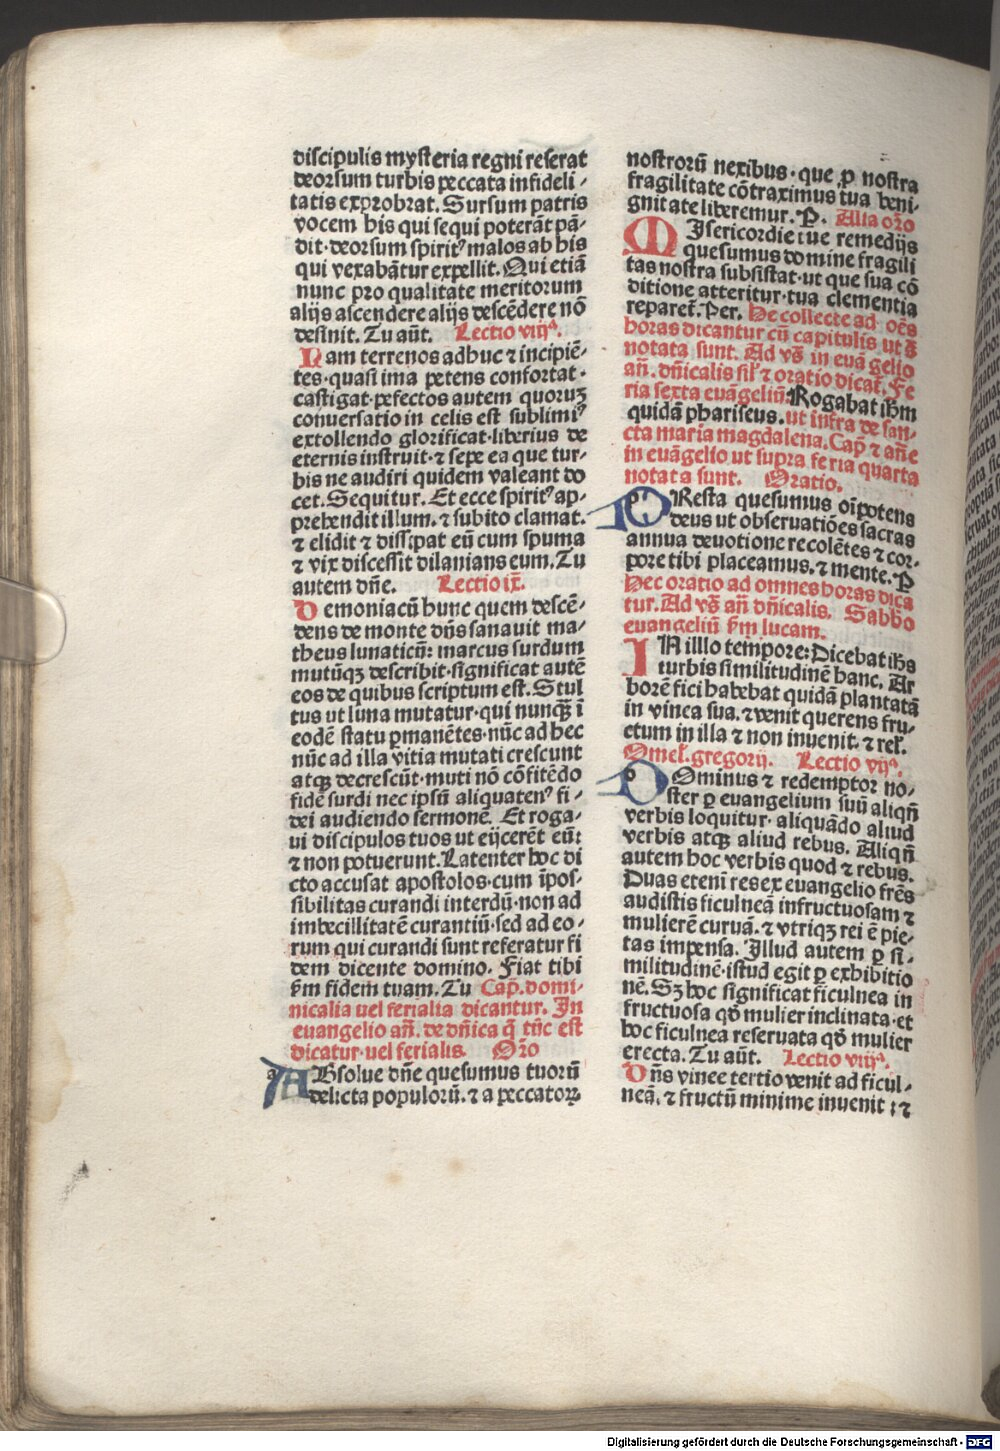 discipulis mysteria regni reserat
deorsum turbis peccata infideli⸗
tatis exprobrat. Sursum patris
vocem his qui sequi poterāt pā⸗
dit·deorsum spiritꝰ malos ab his
qui vexabātur expellit. Qui etiā
nunc pro qualitate meritorum
alijs ascendere alijs descēdere nō
desinit. Tu aūt. Lectio viijª.
Nam terrenos adhuc ⁊ incipiē⸗
tes·quasi ima petens confortat·
castigat·ꝑfectos autem quorūꝫ
conuersatio in celis est sublimiꝰ
extollendo glorificat·liberius de
eternis instruit·⁊ sepe ea que tur⸗
bis ne audiri quidem valeant do
cet. Sequitur. Et ecce spiritꝰ ap⸗
prehendit illum.⁊ subito clamat.
⁊ elidit ⁊ dissipat eū cum spuma
⁊ vix discessit dilanians eum. Tu
autem dn̄e. Lectio ix̄.
Demoniacū hunc quem descē⸗
dens de monte dn̄s sanauit ma⸗
theus lunaticū: marcus surdum
mutūqꝫ describit·significat autē
eos de quibus scriptum est. Stul
tus ut luna mutatur·qui nunqꝫ̄ ī
eodē statu ꝑmanētes·nūc ad hec
nūc ad illa vitia mutati crescunt
atqꝫ decrescūt·muti nō cōfitēdo
fidē surdi nec ipsū aliquatenꝰ fi⸗
dei audiendo sermonē. Et roga⸗
ui discipulos tuos ut eijcerēt eū:
⁊ non potuerunt. Latenter hoc di
cto accusat apostolos·cum īpos⸗
sibilitas curandi interdū·non ad
imbecillitatē curantiū·sed ad eo⸗
rum qui curandi sunt referatur fi
dem dicente domino. Fiat tibi
ẜm fidem tuam. Tu Cap̄. domi⸗
nicalia uel ferialia dicantur. In
euangelio an̄. de dn̄ica q̄ tūc est
dicatur·uel ferialis. Or̄o
a ABsolue dn̄e quesumus tuorū
delicta populorū.⁊ a peccatorꝝ
nostrorū nexibus·que ꝓ nostra
fragilitate cōtraximus tua beni⸗
gnitate liberemur. P̄. Alia or̄o
MIsericordie tue remedijs
quesumus domine fragili
tas nostra subsistat·ut que sua cō
ditione atteritur·tua clementia
reparet̄. Per. He collecte ad oēs
horas dicantur cū capitulis ut ẜ
notata sunt. Ad vs̄ in euāgelio
an̄. dn̄icalis sil̄ ⁊ oratio dicat̄. Fe
ria sexta euāgeliū: Rogabat ih̄m
quidā phariseus. ut infra de san⸗
cta maria magdalena. Cap̄ ⁊ an̄e
in euāgelio ut supra feria quarta
notata sunt. Oratio.
p PResta quesumus oīpotens
deus ut obseruatiōes sacras
annua deuotione recolētes ⁊ cor⸗
pore tibi placeamus.⁊ mente. P̄
Hec oratio ad omnes horas dica
tur. Ad vs̄ an̄ dn̄icalis. Sabb̄o
euangeliū ẜm lucam.
IN illlo tempore: Dicebat ih̄s
turbis similitudinē hanc. Ar
borē fici habebat quidā plantatā
in vinea sua.⁊ venit querens fru⸗
ctum in illa ⁊ non inuenit.⁊ rel̄.
Omel̄. gregorij. Lectio vijª.
D DOminus ⁊ redemptor no⸗
ster ꝑ euangelium suū aliqn̄
verbis loquitur·aliquādo aliud
verbis atqꝫ aliud rebus. Aliqn̄
autem hoc verbis quod ⁊ rebus.
Duas etenī res ex euangelio fr̄es
audistis ficulneā infructuosam ⁊
mulierē curuā.⁊ vtriqꝫ rei ē pie⸗
tas impensa. Illud autem ꝑ si⸗
militudinē·istud egit ꝑ exhibitio
nē. Sꝫ hoc significat ficulnea in
fructuosa qd̄ mulier inclinata·et
hoc ficulnea reseruata qd̄ mulier
erecta. Tu aūt. Lectio viijª.
Dn̄s vinee tertio venit ad ficul⸗
neā.⁊ fructū minime inuenit:⁊
Digitalisierung gefördert durch die Deutsche Forschungsgemeinschaft - DFG